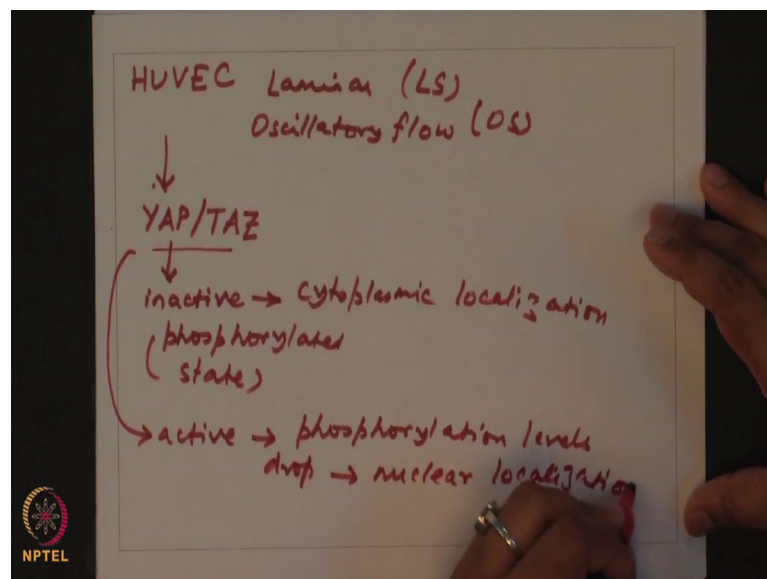 HUVEC Laminar (LS)
Oscillatory flow (OS)
YAP/TAZ
inactive → cytoplasmic localization
(phosphorylated
state)
active → phosphorylation levels
drop → nuclear localization
NPTEL